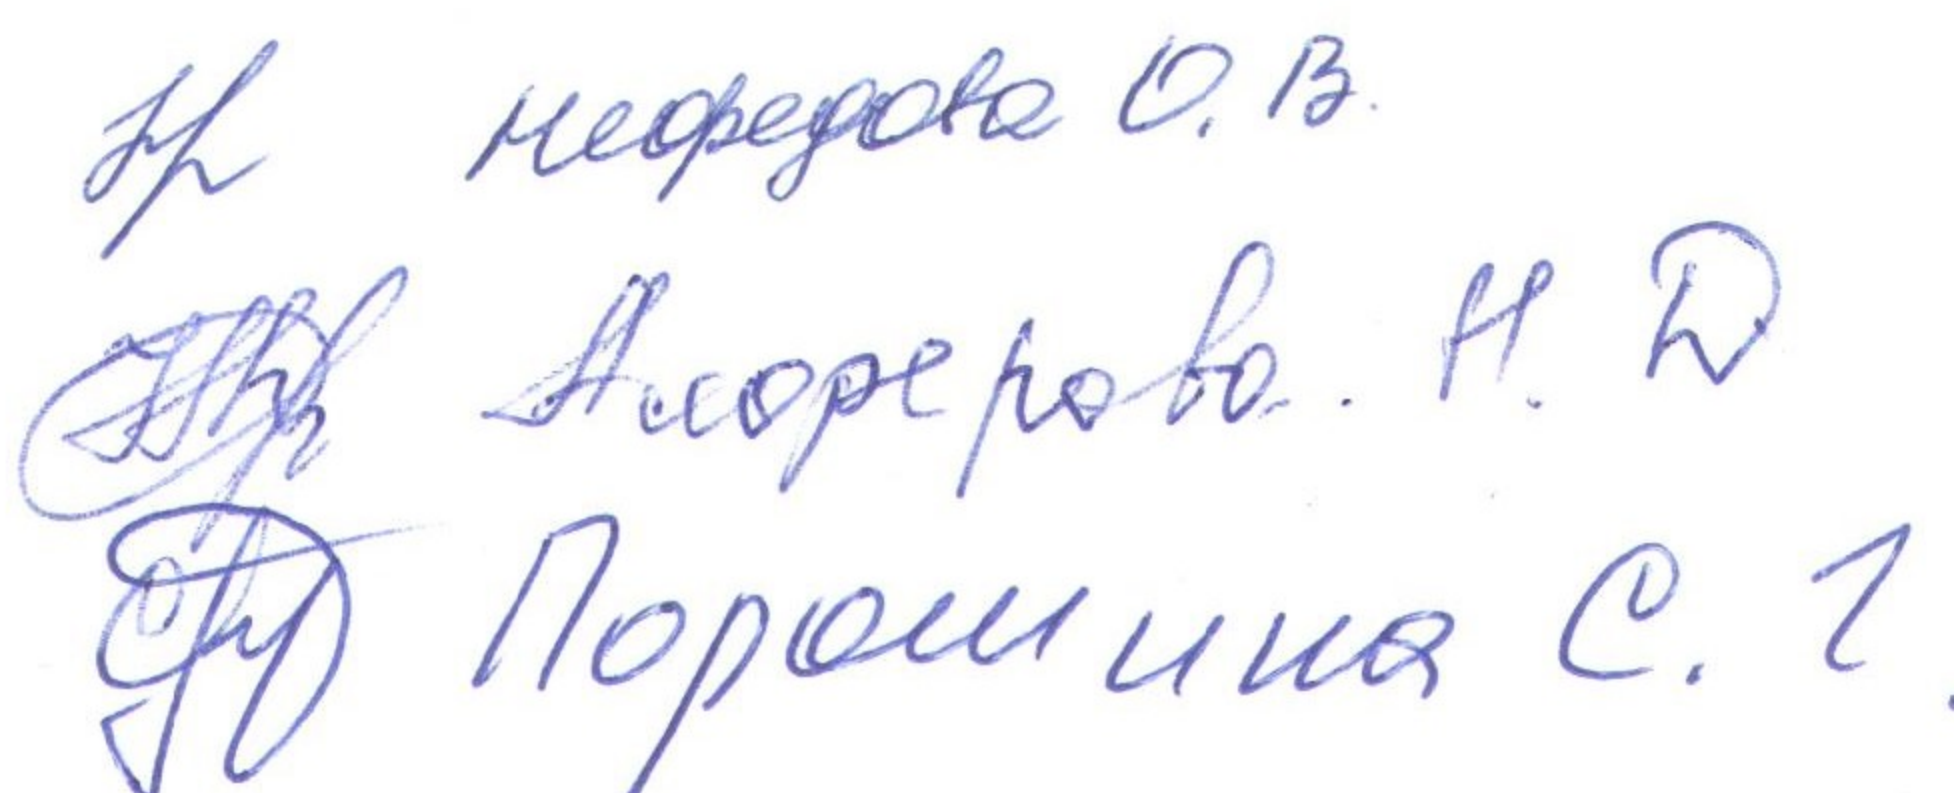 Нефедова О. В.
Алферова. Н. Д
Порошина С. Г.